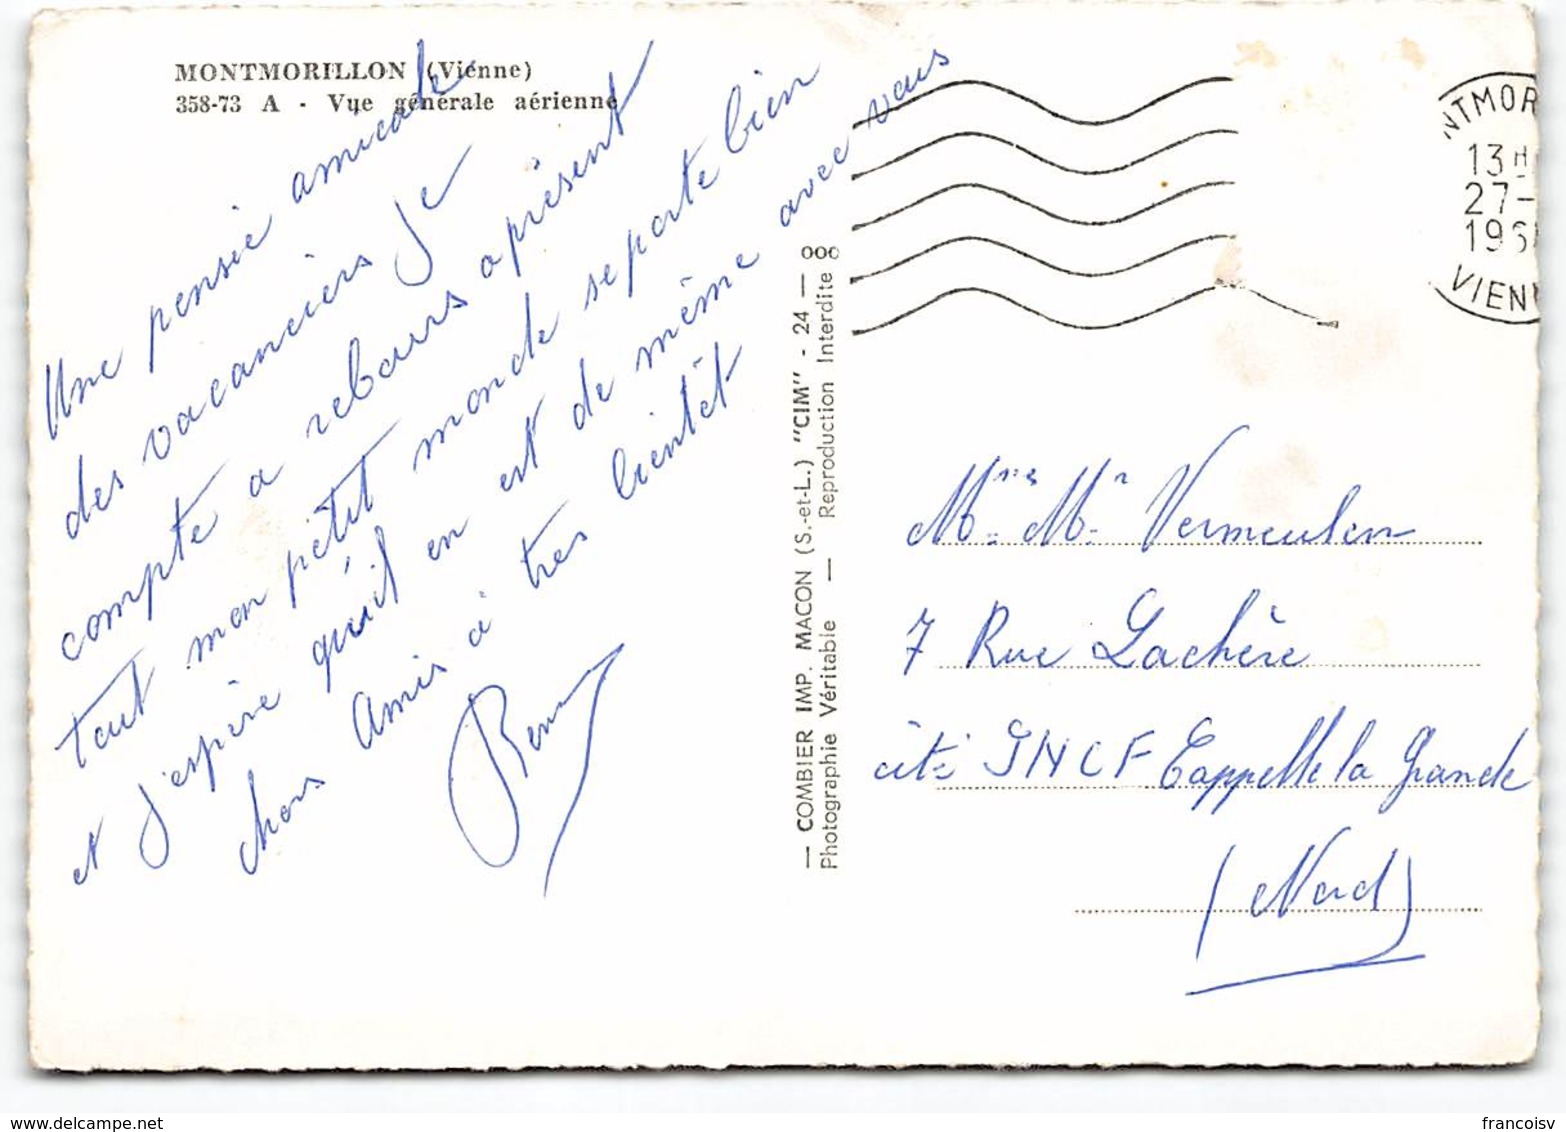 MONTMORILLON (Vienne)
358-73 A - Vue générale aérienne
Une pensée amicale
des vacanciers Je
compte a rebours a présent
tout mon pétit monde se porte bien
et j'espère qu'il en est de même avec vous
chers Amis à tres bientôt
— COMBIER IMP. MACON (S.-et-L.) "CIM" - 24 —
Photographie Véritable — Reproduction Interdite
NTMOR
13 H
27-
196
VIENN
Mme Mr Vermeulen
7 Rue Lachère
cité SNCF Cappelle la Grande
(Nord)
www.delcampe.net
francoisv